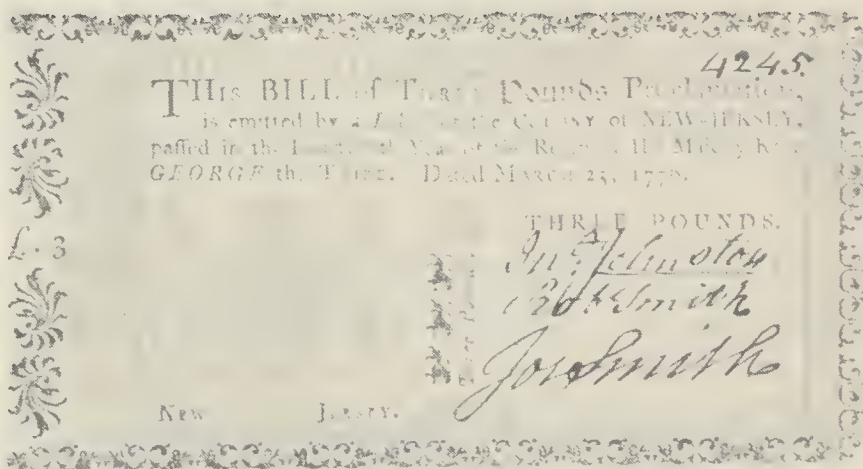 4245.
THis BILL of Three Pounds Proclamation,
is emitted by a of the COLONY of NEW-JERSEY,
passed in the Year of the Reign of His Majesty
GEORGE the Third. Dated MARCH 25, 1776.
THREE POUNDS.
£. 3
Jno. Johnston
Robt Smith
Jos Smith
NEW JERSEY.